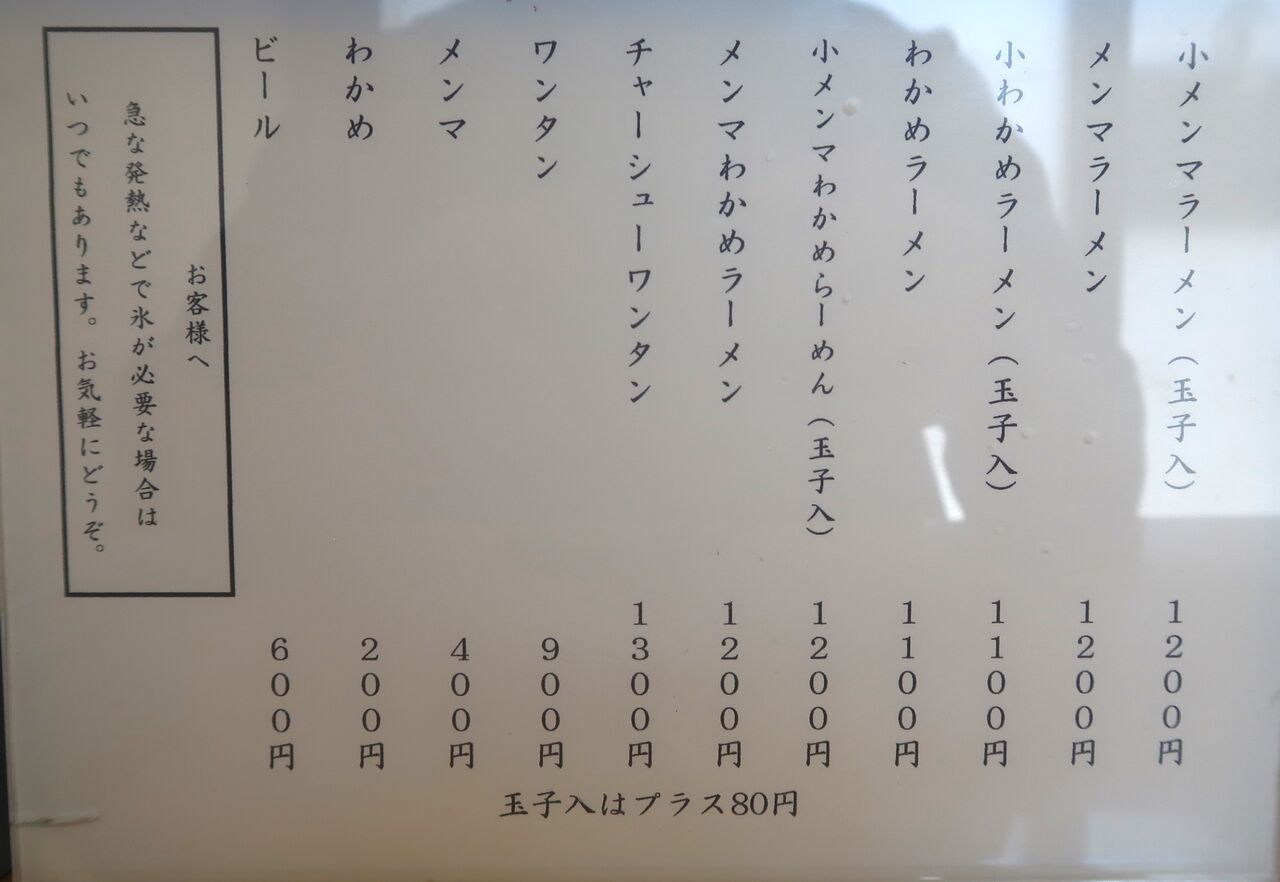 小メンマラーメン（玉子入） 1200円
メンマラーメン 1200円
小わかめラーメン（玉子入） 1100円
わかめラーメン 1100円
小メンマわかめらーめん（玉子入） 1200円
メンマわかめラーメン 1200円
チャーシューワンタン 1300円
ワンタン 900円
メンマ 400円
わかめ 200円
ビール 600円
玉子入はプラス80円
お客様へ
急な発熱などで氷が必要な場合は
いつでもあります。お気軽にどうぞ。